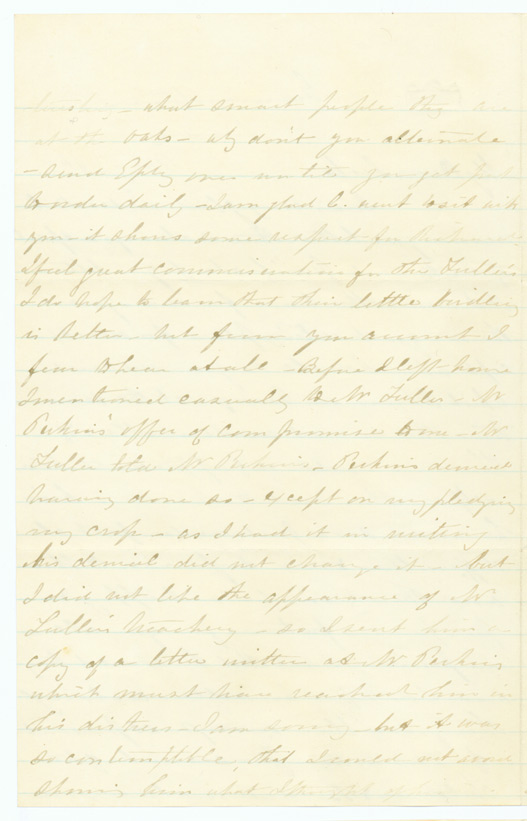 what smart people they are
at the oats - why don't you alternate
- send Effy one until you get
under daily - I am glad C. went to sit with
you - it shows some respect for
I feel great commiseration for the Fullers
I do hope to learn that their little
is better - but from your account I
fear to hear at all - Before I left home
I mentioned casually to Mr Fuller - Mr
Perkins' offer of compromise to me - Mr
Fuller told Mr Perkins - Perkins denied
having done so - except on my pledging
my crop - as I had it in writing
his denial did not change it - but
I did not like the appearance of Mr
Fuller's treachery - so I sent him a
copy of a letter written as Mr Perkins
which must have reached him in
his distress - I am sorry - but it was
so contemptible, that I could not avoid
showing him what I thought of